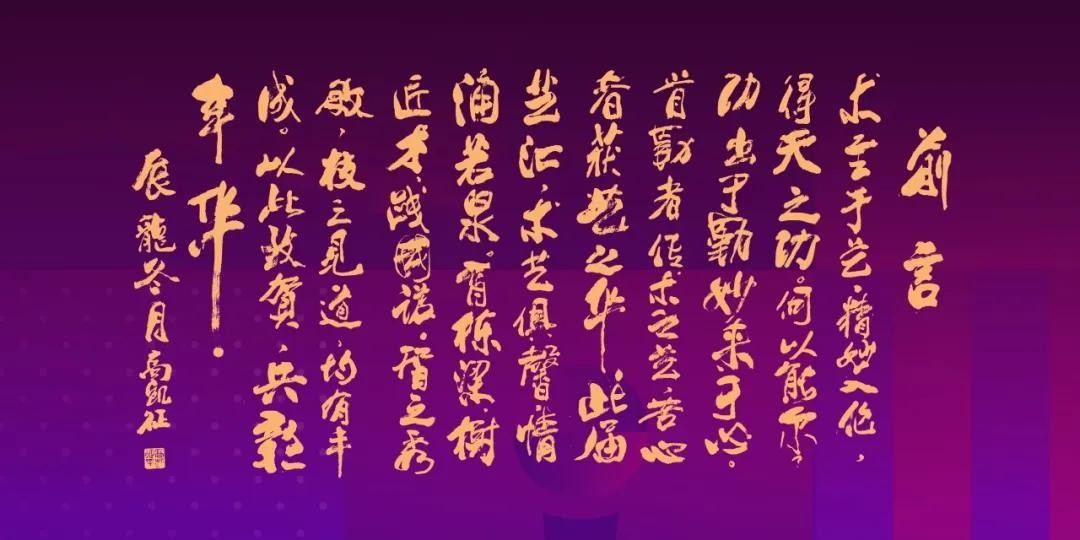 前言
术至于艺，精妙入化，
得天之功。何以能尔？
功出于勤，妙来于心。
首勤者传术之芸，苦心
者获艺之华。此届
芸汇，术艺俱馨，情
涌若泉。育栋梁，树
匠才，践国诺。智之秀
敢，枝三见道，均有丰
成。以此致贺，兵歌
年华。
辰龙冬月高凯征